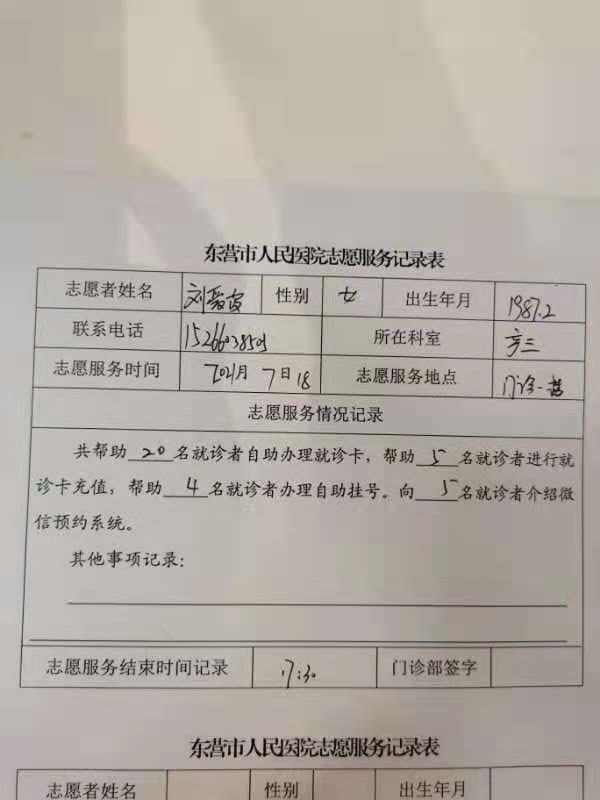 东营市人民医院志愿服务记录表
志愿者姓名 刘 性别 女 出生年月 1987.2
联系电话 所在科室
志愿服务时间 2021 7日18 志愿服务地点 门诊一楼
志愿服务情况记录
共帮助 20 名就诊者自助办理就诊卡，帮助 5 名就诊者进行就
诊卡充值，帮助 4 名就诊者办理自助挂号。向 5 名就诊者介绍微
信预约系统。
其他事项记录：
志愿服务结束时间记录 17:30 门诊部签字
东营市人民医院志愿服务记录表
志愿者姓名 性别 出生年月